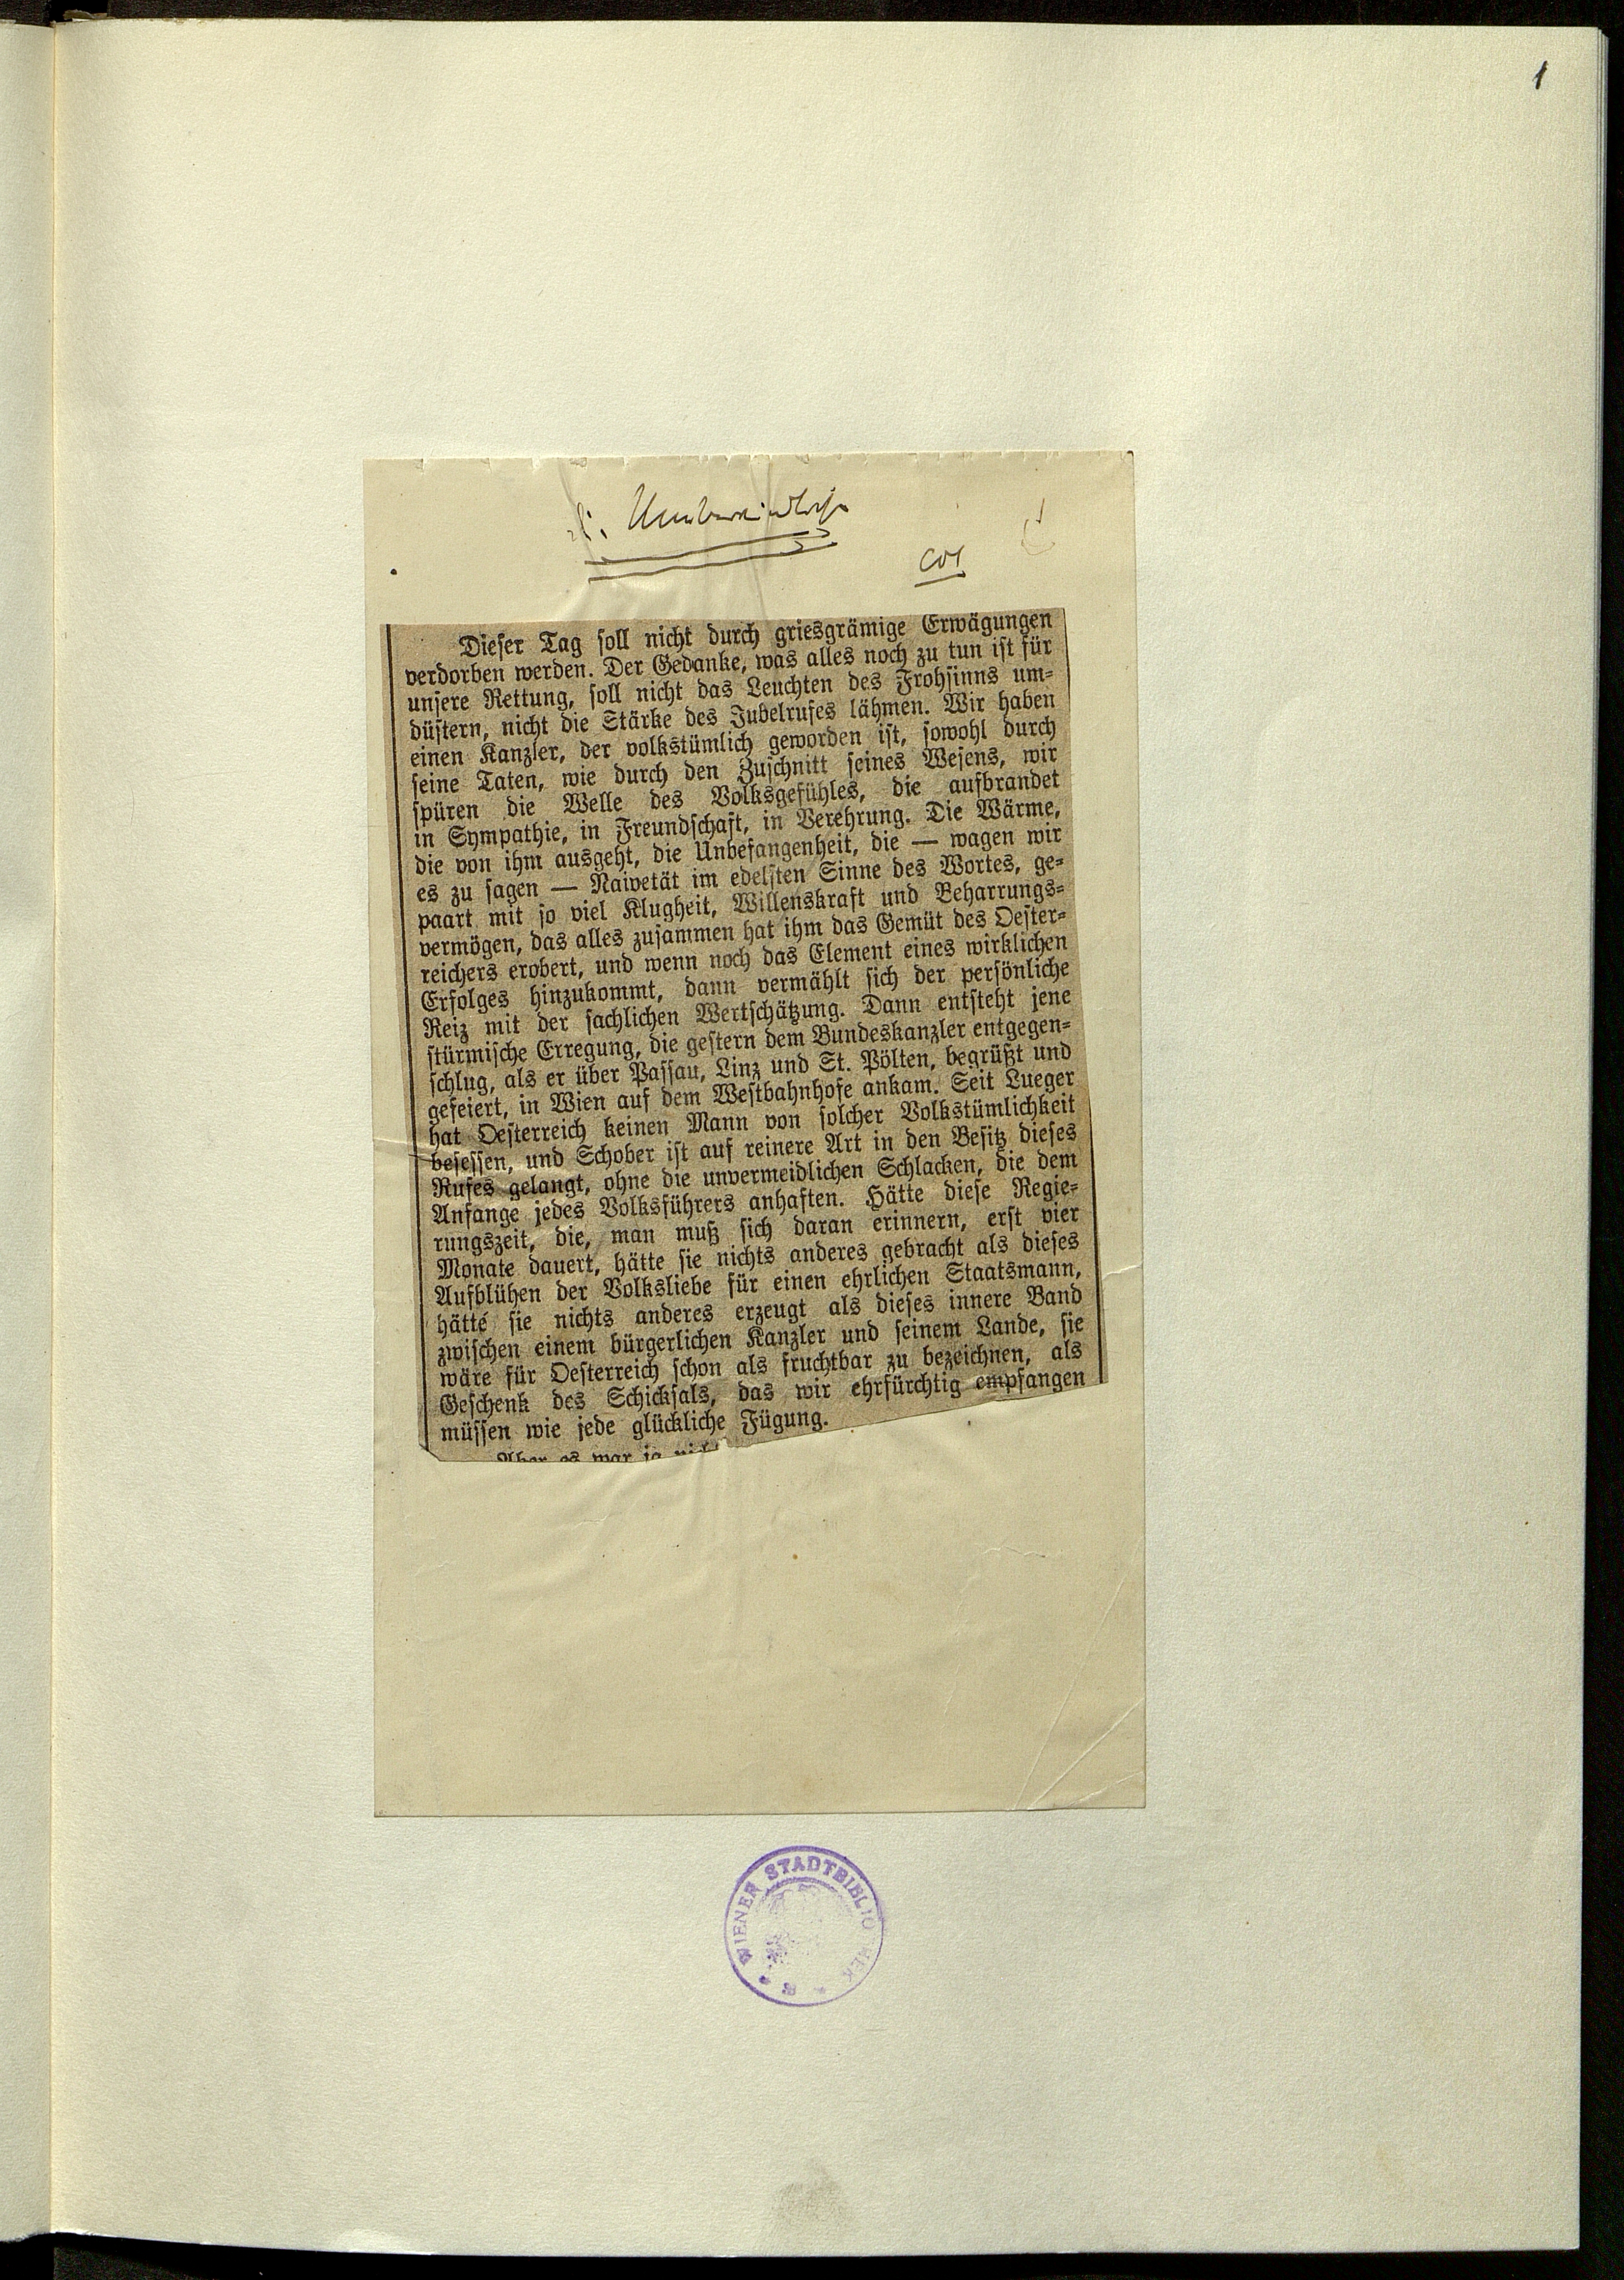 1
Dieser Tag soll nicht durch griesgrämige Erwägungen
verdorben werden. Der Gedanke, was alles noch zu tun ist für
unsere Rettung, soll nicht das Leuchten des Frohsinns um-
düstern, nicht die Stärke des Jubelrufes lähmen. Wir haben
einen Kanzler, der volkstümlich geworden ist, sowohl durch
seine Taten, wie durch den Zuschnitt seines Wesens, wir
spüren die Welle des Volksgefühles, die aufbrandet
in Sympathie, in Freundschaft, in Verehrung. Die Wärme,
die von ihm ausgeht, die Unbefangenheit, die — wagen wir
es zu sagen — Naivetät im edelsten Sinne des Wortes, ge-
paart mit so viel Klugheit, Willenskraft und Beharrungs-
vermögen, das alles zusammen hat ihm das Gemüt des Oester-
reichers erobert, und wenn noch das Element eines wirklichen
Erfolges hinzukommt, dann vermählt sich der persönliche
Reiz mit der sachlichen Wertschätzung. Dann entsteht jene
stürmische Erregung, die gestern dem Bundeskanzler entgegen-
schlug, als er über Passau, Linz und St. Pölten, begrüßt und
gefeiert, in Wien auf dem Westbahnhofe ankam. Seit Lueger
hat Oesterreich keinen Mann von solcher Volkstümlichkeit
besessen, und Schober ist auf reinere Art in den Besitz dieses
Rufes gelangt, ohne die unvermeidlichen Schlacken, die dem
Anfange jedes Volksführers anhaften. Hätte diese Regie-
rungszeit, die, man muß sich daran erinnern, erst vier
Monate dauert, hätte sie nichts anderes gebracht als dieses
Aufblühen der Volksliebe für einen ehrlichen Staatsmann,
hätte sie nichts anderes erzeugt als dieses innere Band
zwischen einem bürgerlichen Kanzler und seinem Lande, sie
wäre für Oesterreich schon als fruchtbar zu bezeichnen, als
Geschenk des Schicksals, das wir ehrfürchtig empfangen
müssen wie jede glückliche Fügung.
Aber es war ja
WIENER STADTBIBLIOTHEK